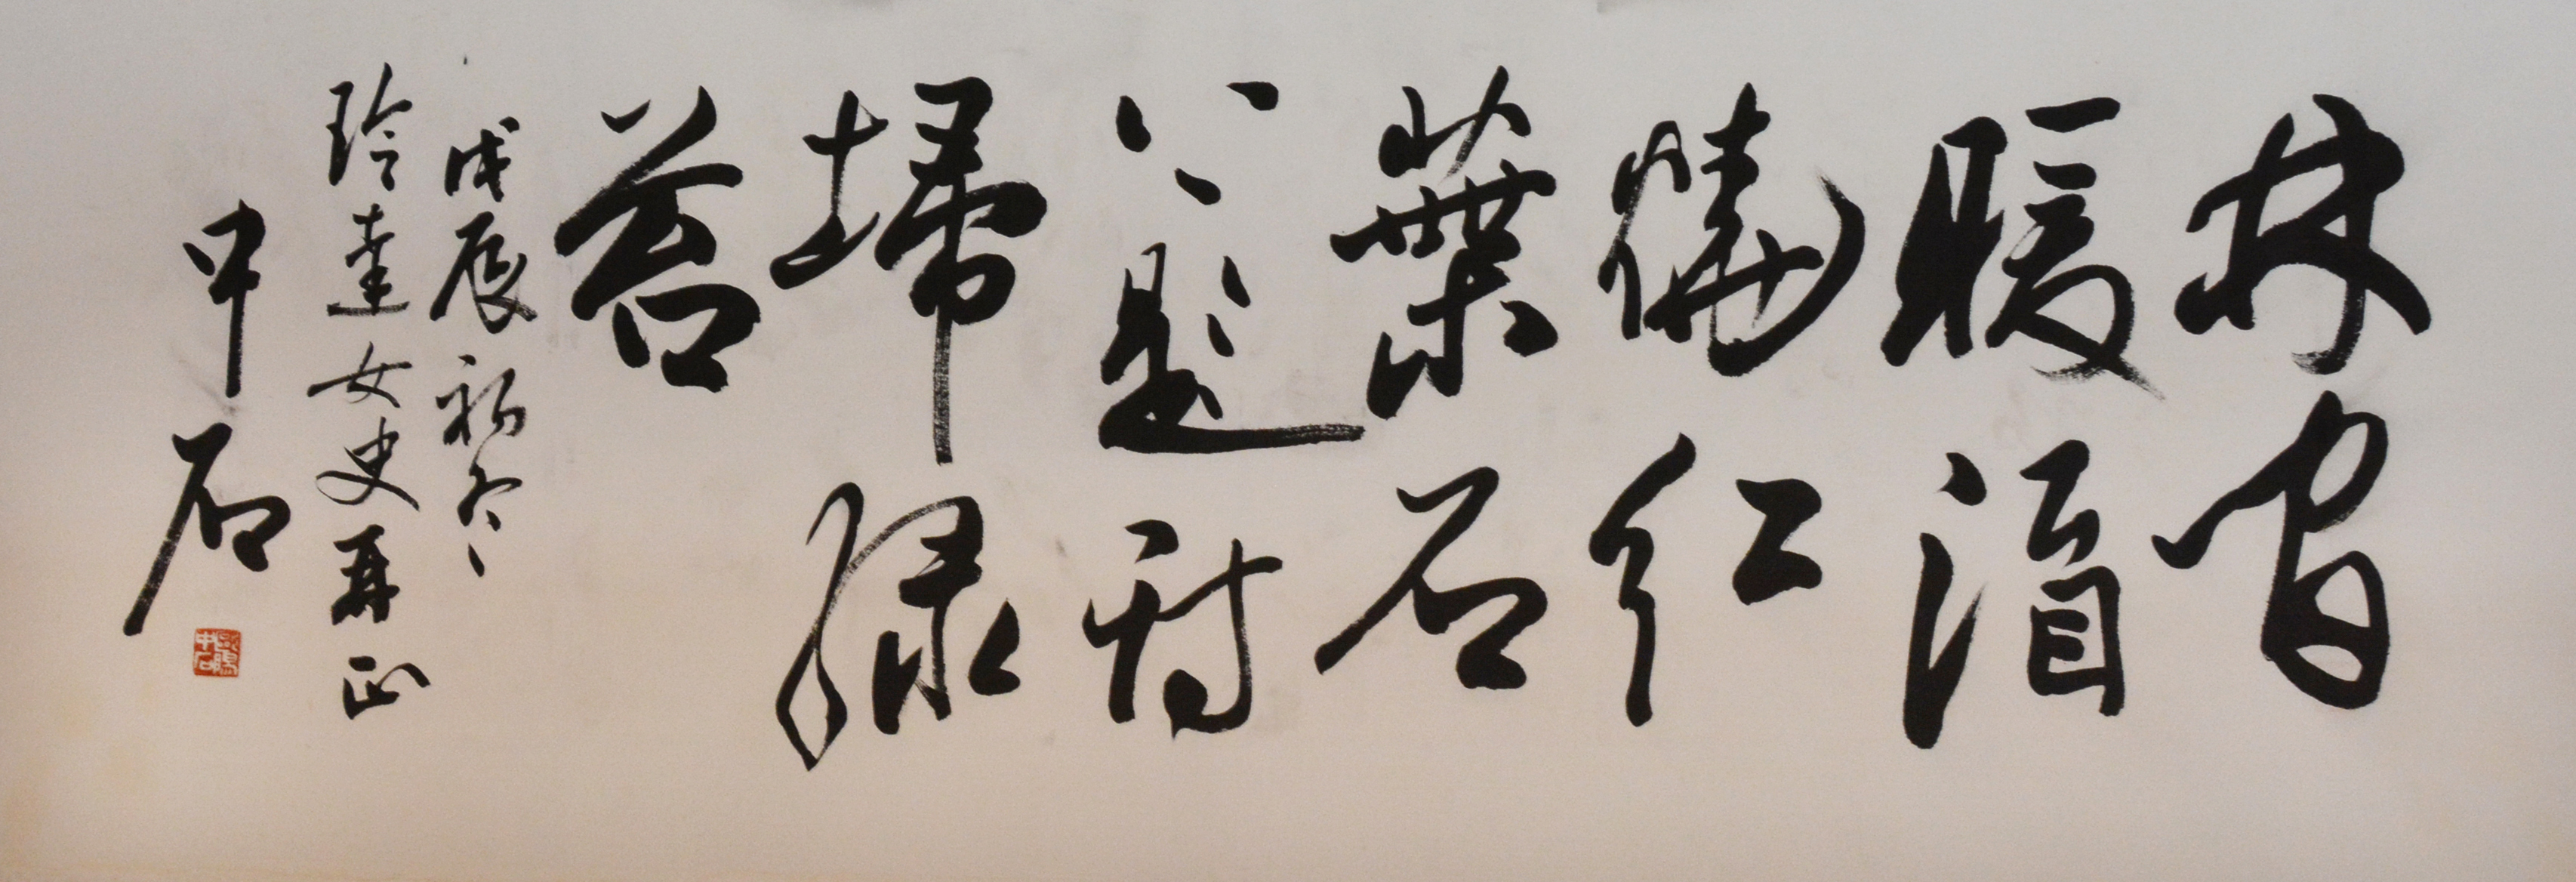 林間
暖酒
燒紅
葉石
上題詩
掃綠
苔
戊辰初冬
玲達女史再正
中石
歐陽中石